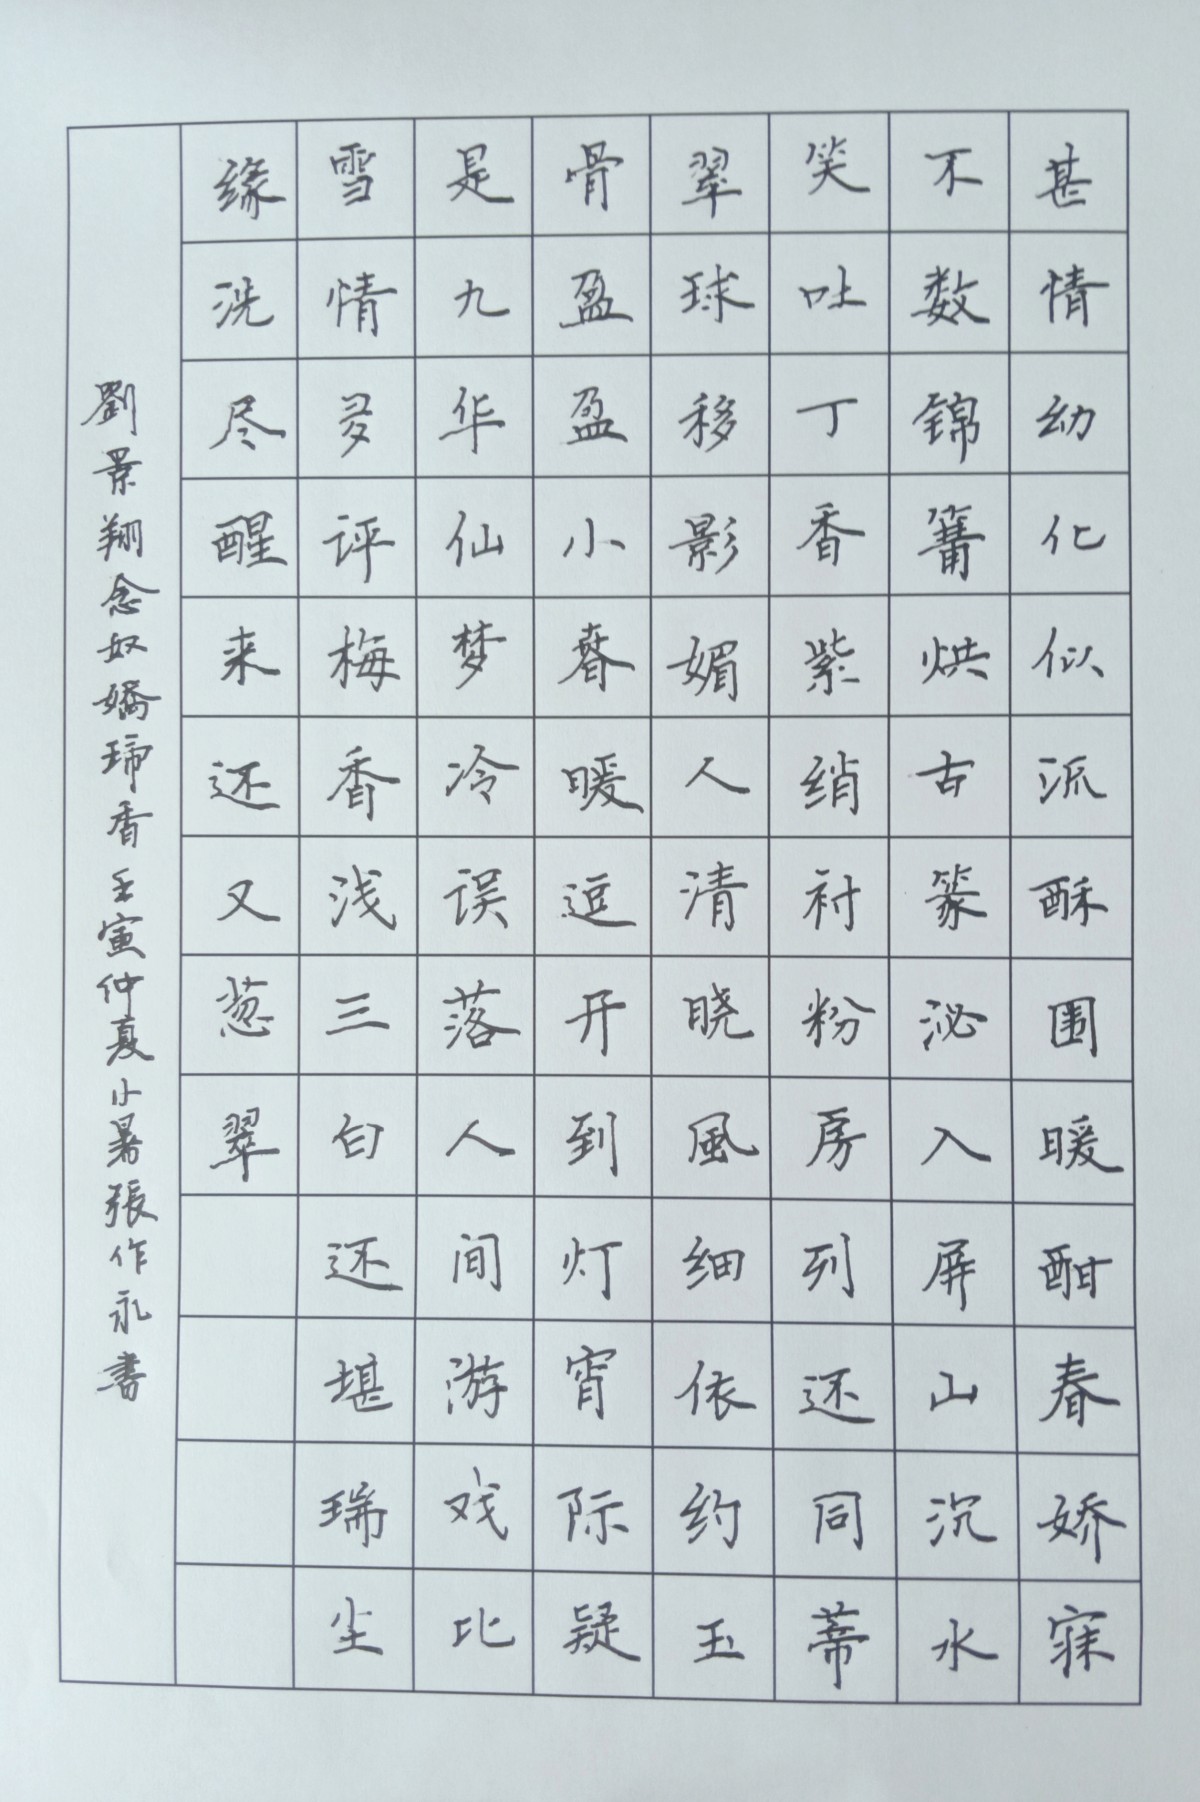 甚情幼化似流酥围暖酣春娇寐
不数锦篝烘古篆泌入屏山沉水
笑吐丁香紫绡衬粉房列还同蒂
翠球移影媚人清晓風细依约玉
骨盈盈小春暖逗开到灯宵际疑
是九华仙梦冷误落人间游戏比
雪情多评梅香浅三白还堪瑞尘
缘洗尽醒来还又葱翠
劉景翔念奴嬌瑞香壬寅仲夏小暑張作永書